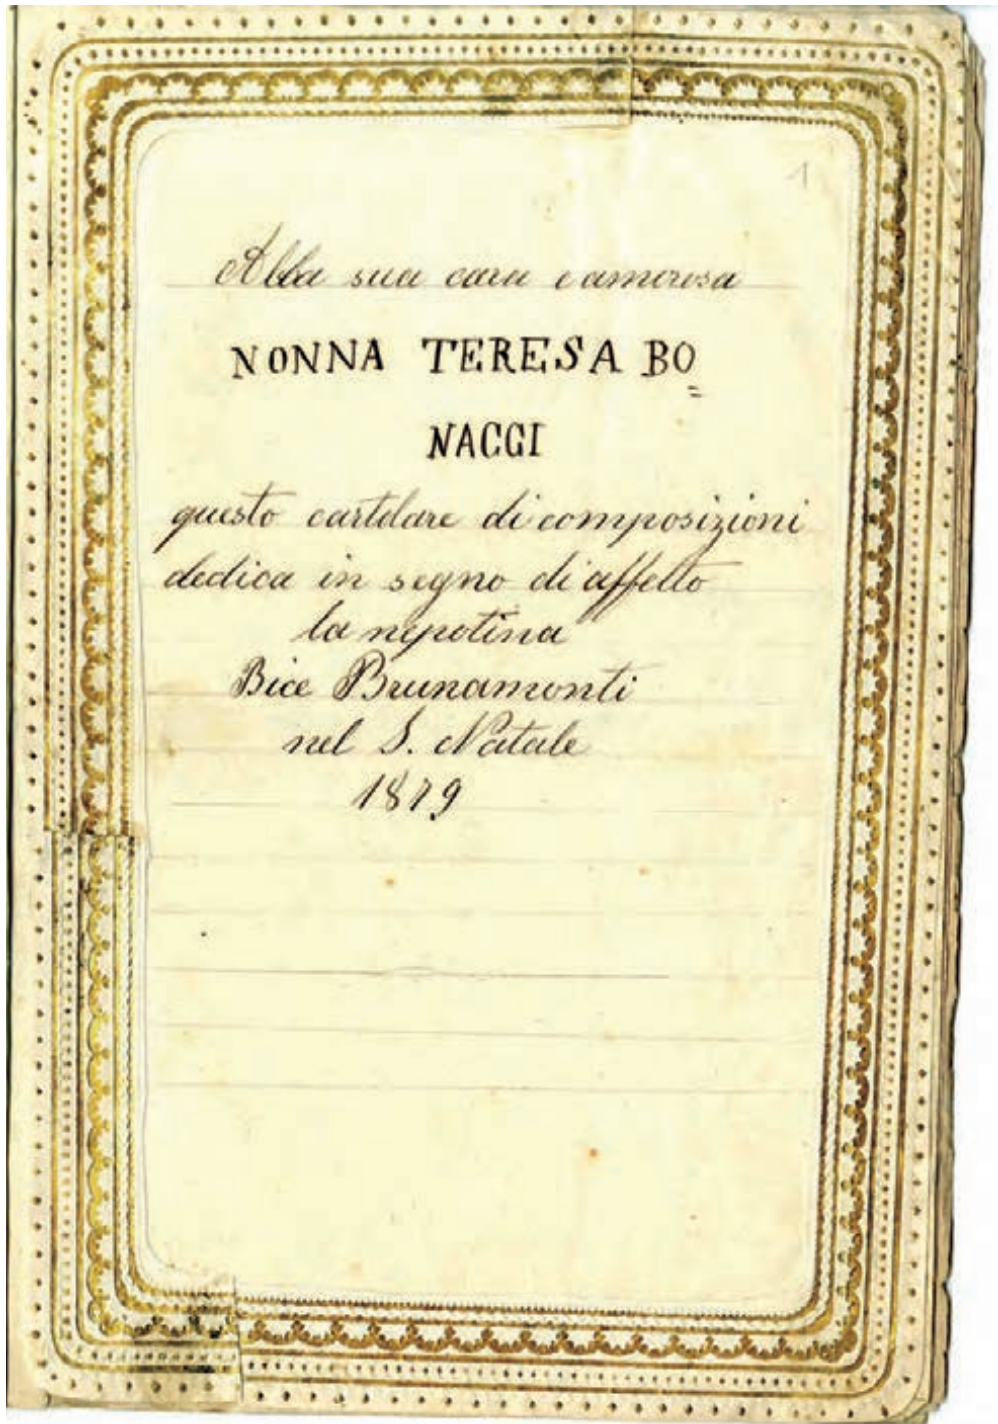 1
Alla sua cara e amorosa
NONNA TERESA BO=
NACCI
questo cartolare di composizioni
dedica in segno di affetto
la nipotina
Bice Brunamonti
nel S. Natale
1879